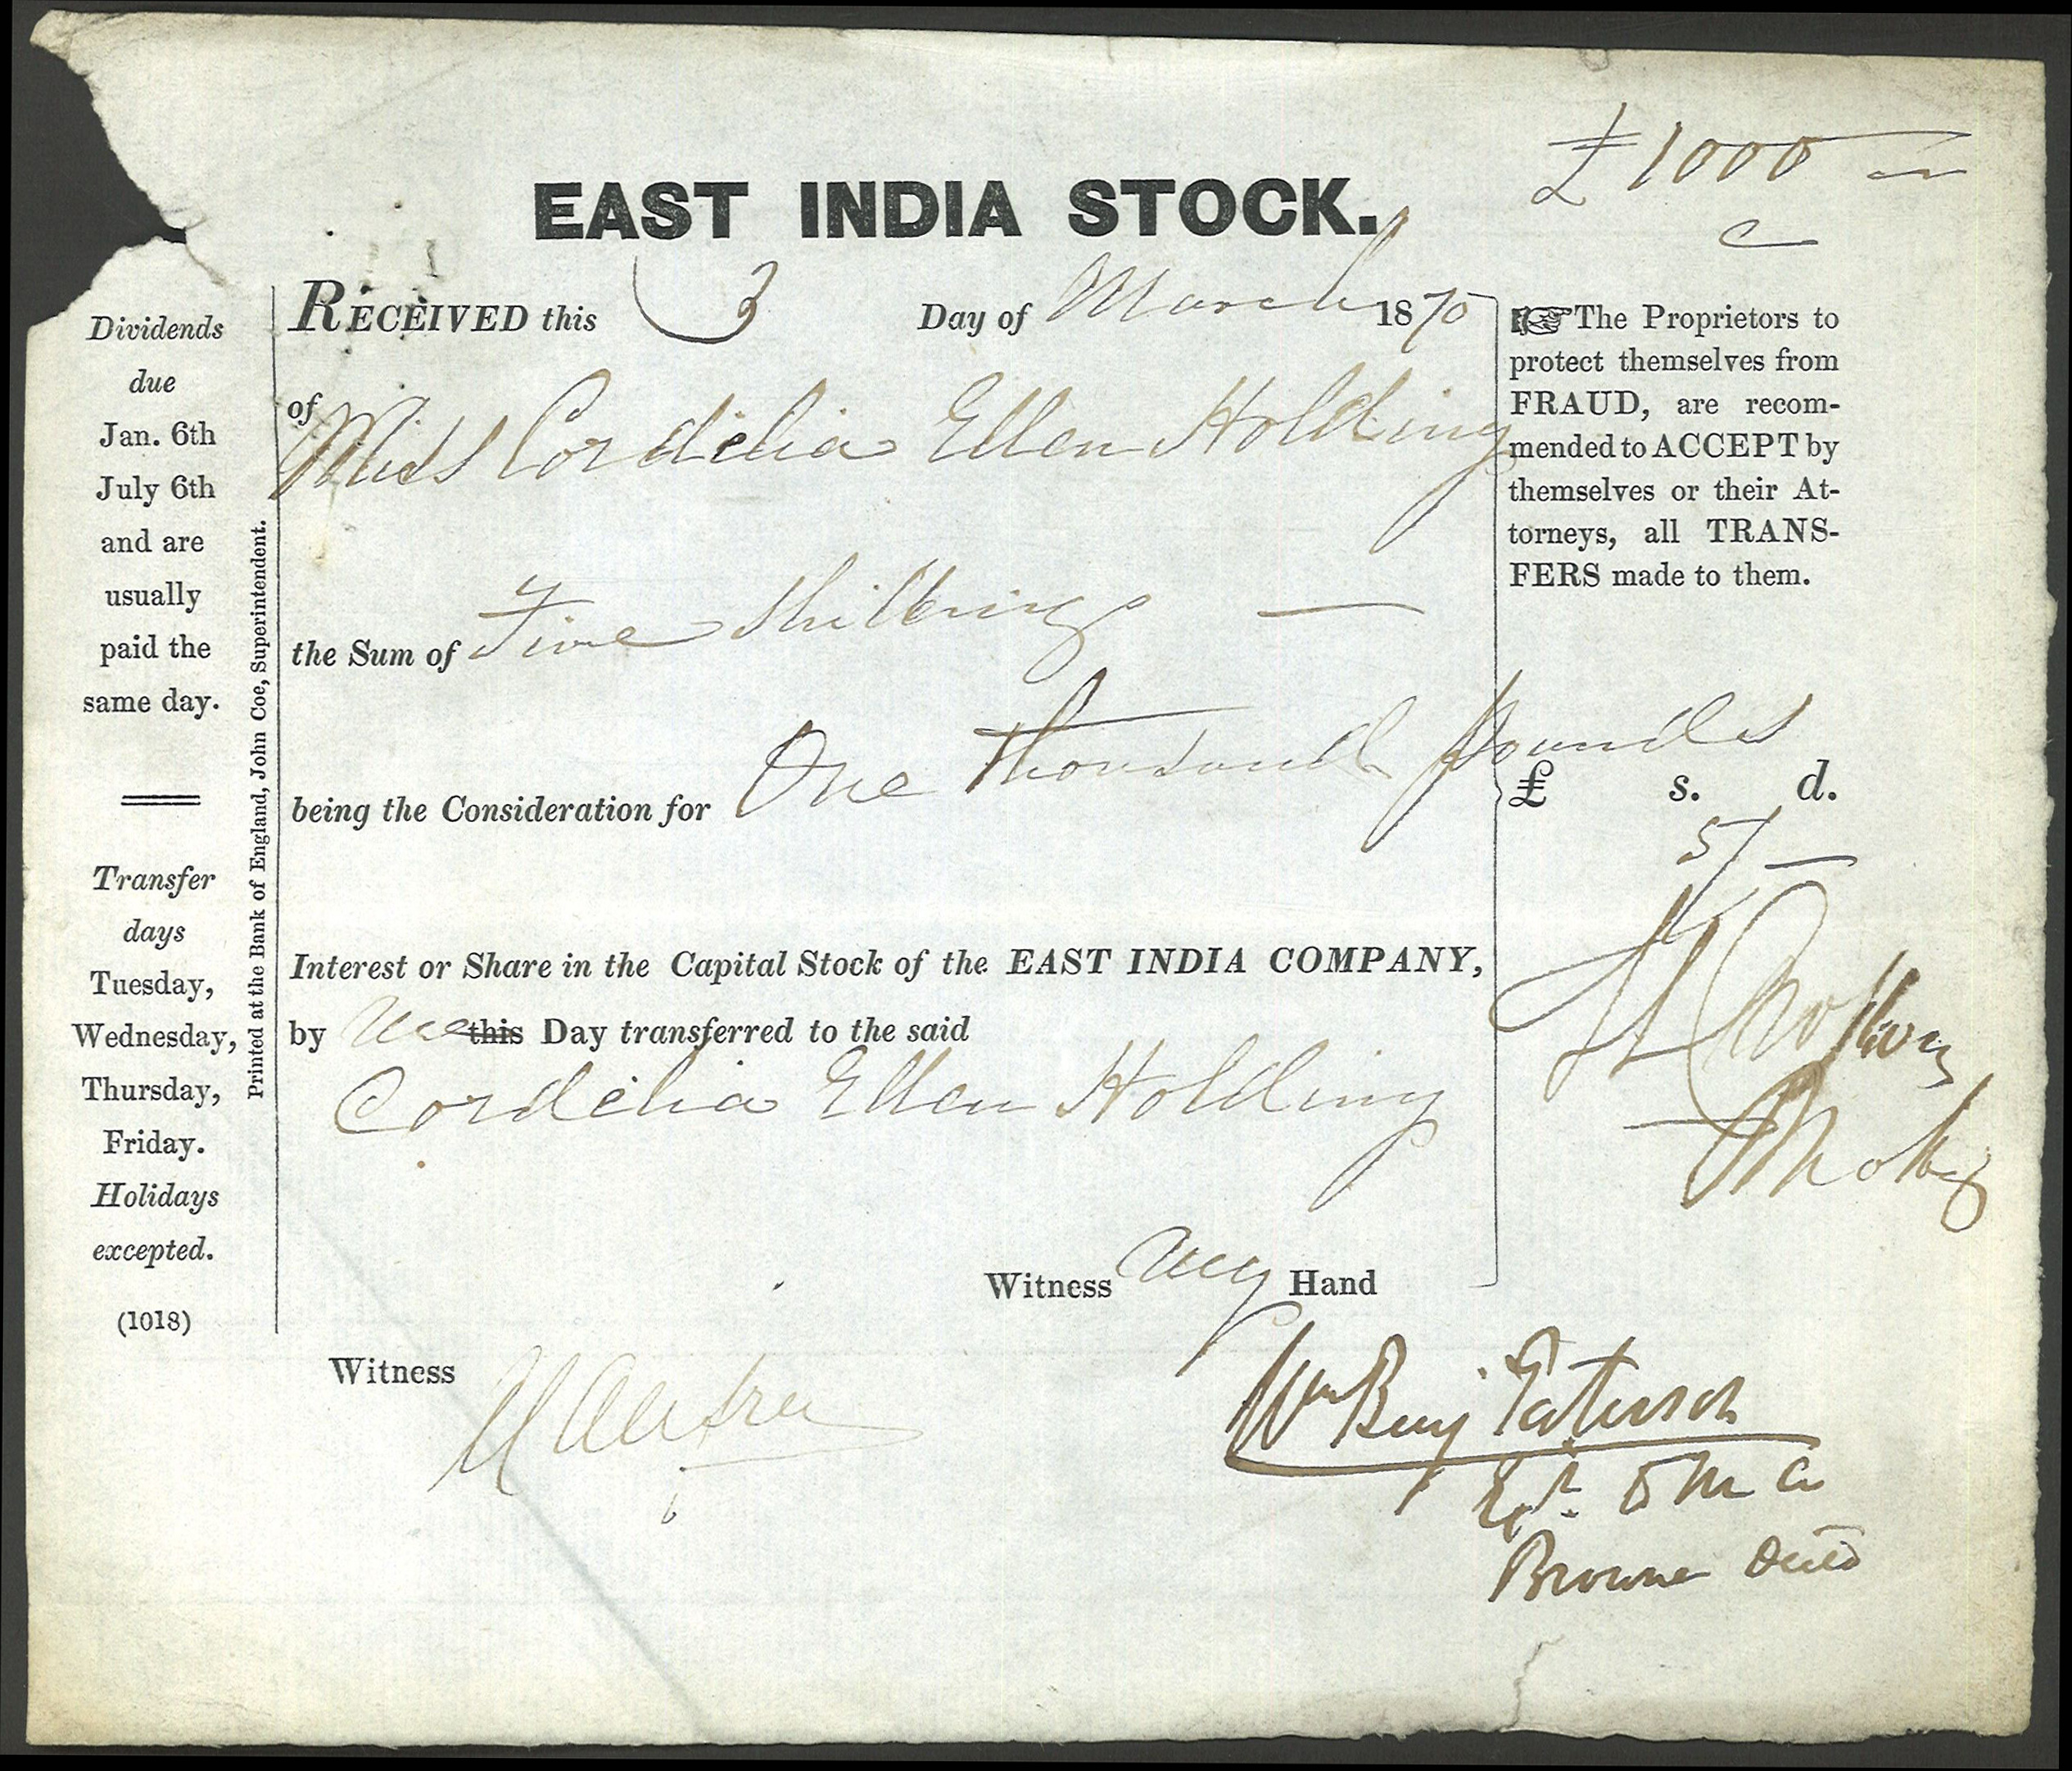 £1000
EAST INDIA STOCK.
RECEIVED this 3 Day of March 1870
of Miss Cordelia Ellen Holding
the Sum of Five Shillings —
being the Consideration for One Thousand pounds
Interest or Share in the Capital Stock of the EAST INDIA COMPANY,
by me this Day transferred to the said
Cordelia Ellen Holding
Witness my Hand
Witness
Wm Benj Paterson
Browne
Dividends
due
Jan. 6th
July 6th
and are
usually
paid the
same day.
Transfer
days
Tuesday,
Wednesday,
Thursday,
Friday.
Holidays
excepted.
(1018)
Printed at the Bank of England, John Coe, Superintendent.
☞ The Proprietors to
protect themselves from
FRAUD, are recom-
mended to ACCEPT by
themselves or their At-
torneys, all TRANS-
FERS made to them.
£ s. d.
5/—